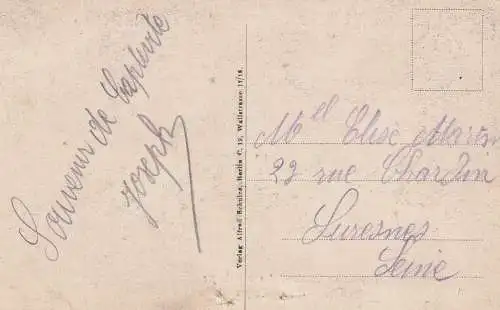 Souvenir de Captivité
Joseph
Verlag Alfred Schulze, Berlin C. 19, Wallstrasse 17/18.
Mel Elise Martin
22 rue Chardin
Suresnes
Seine